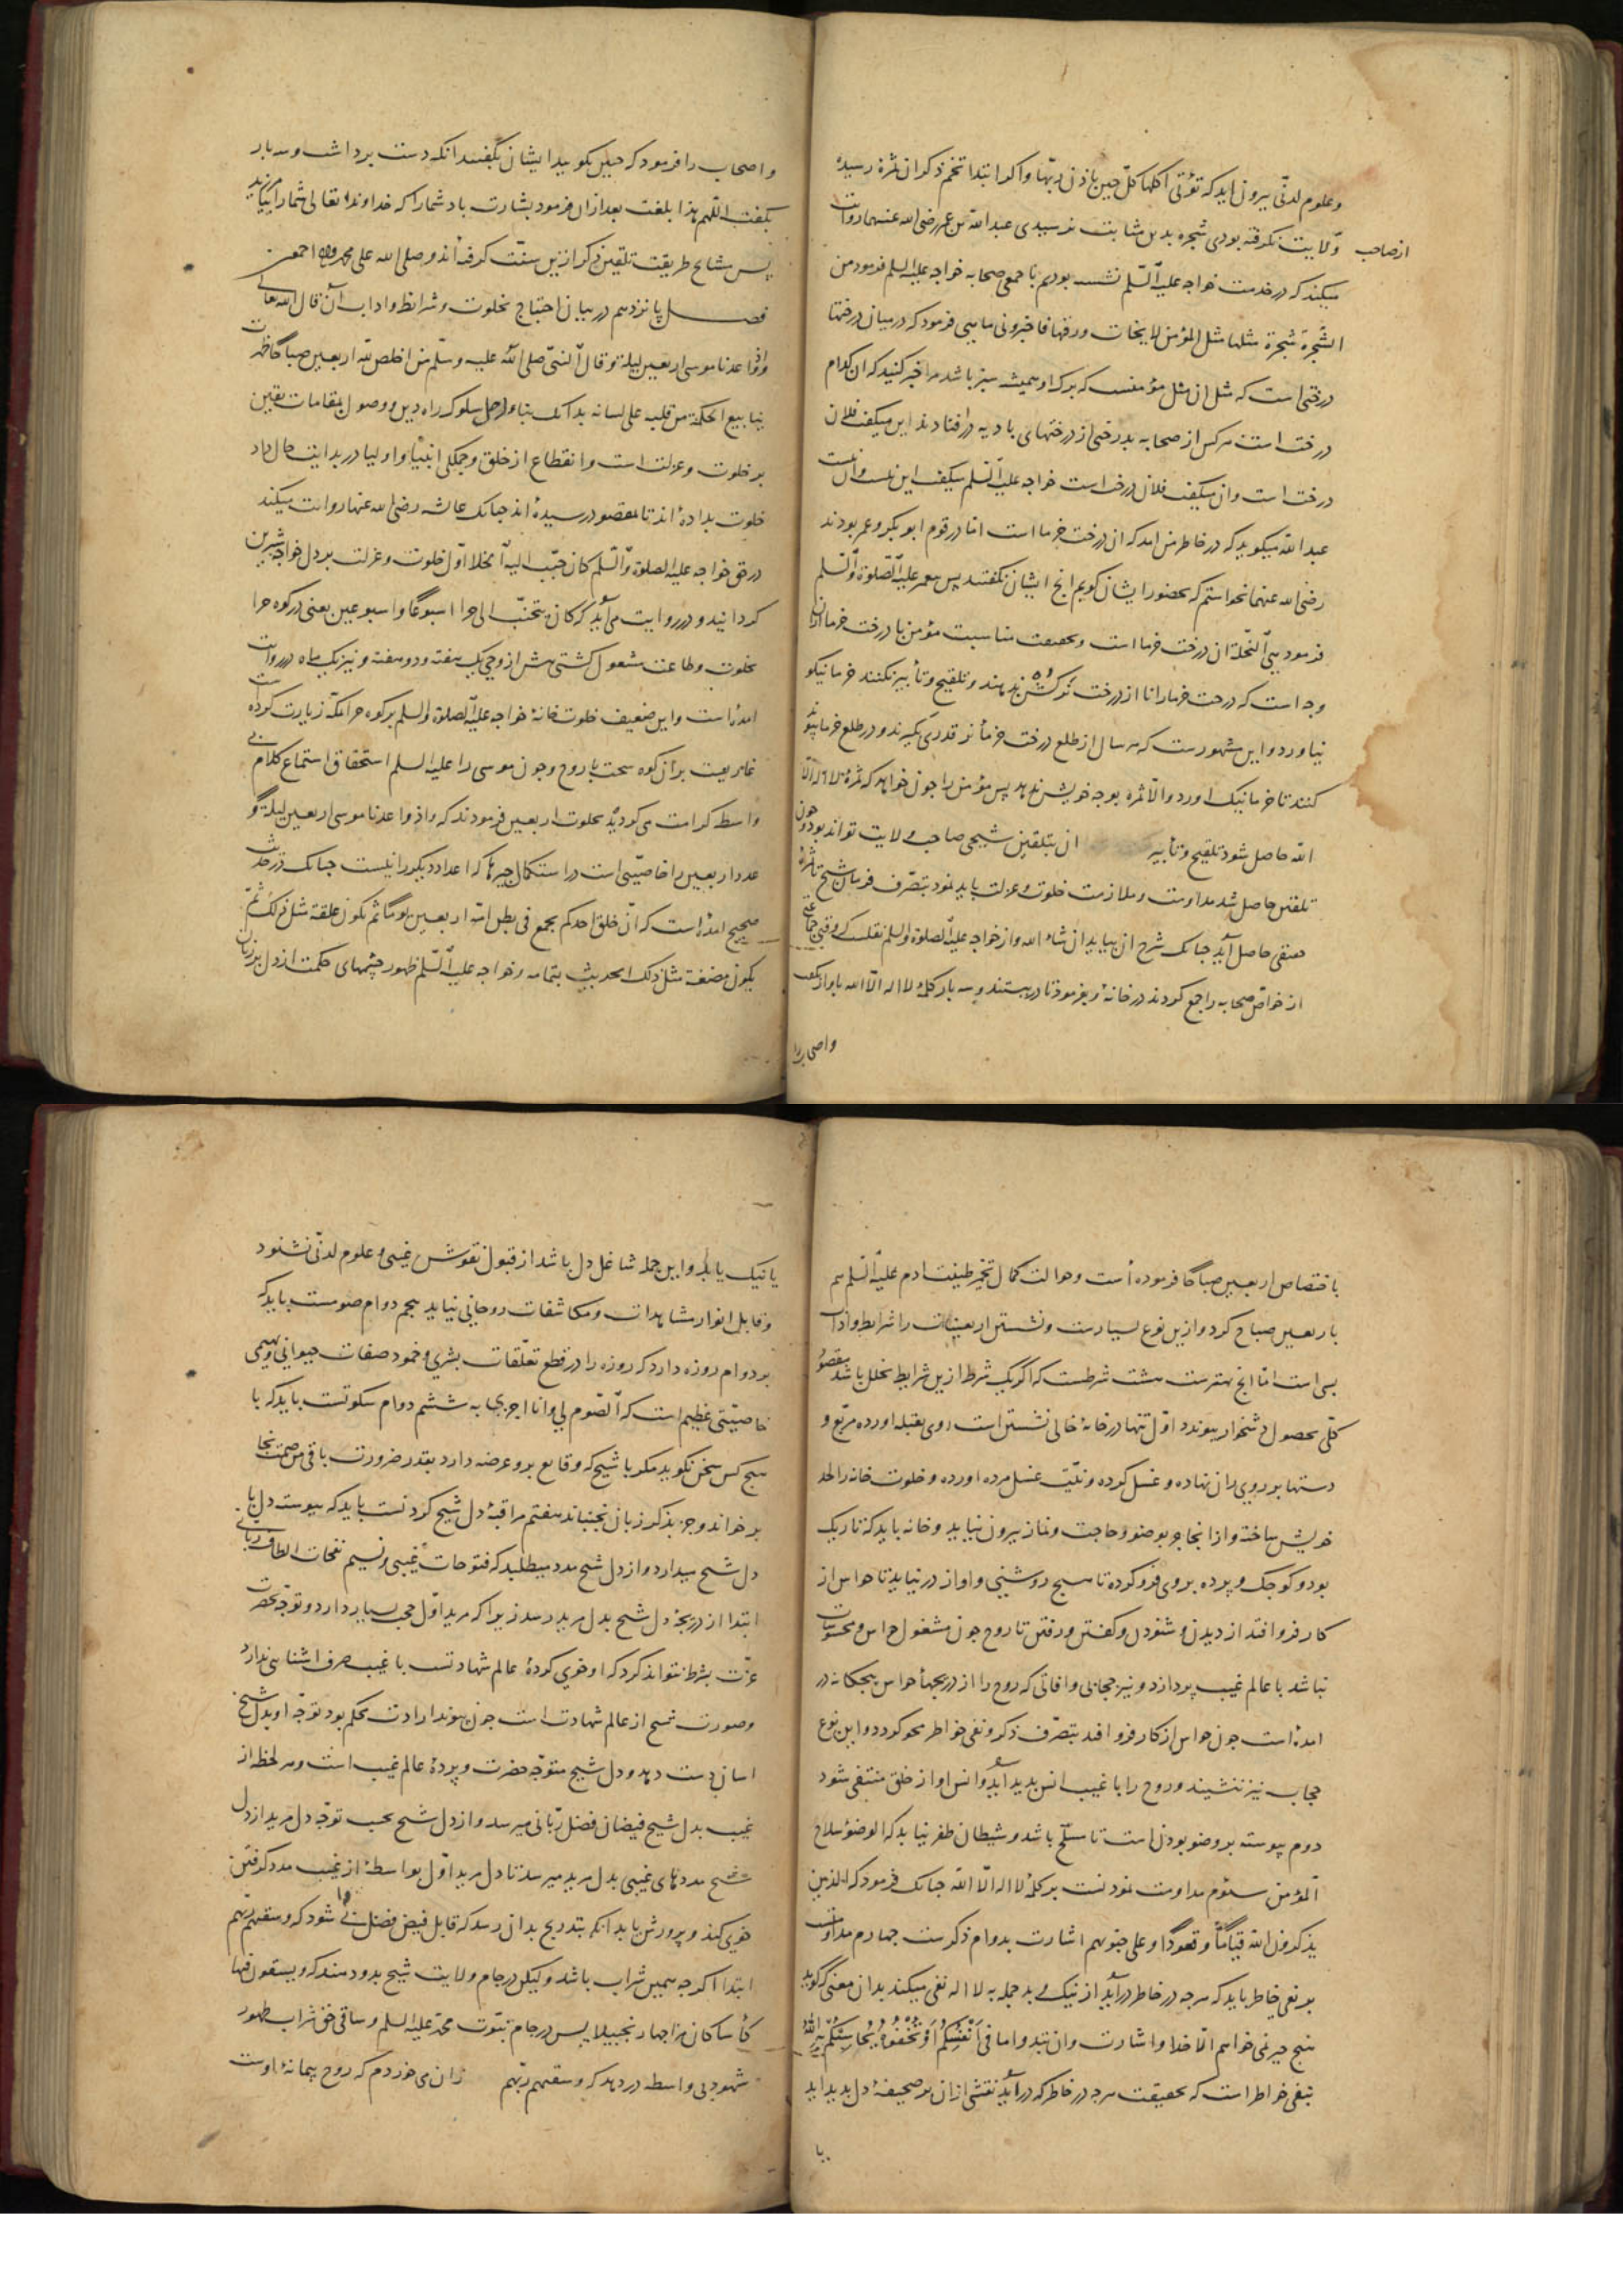 وعلوم لدنّی بیرون اید که تؤتی اکلها کلّ حین باذن ربّها واکر ابتدا تخم ذکر ان ثمرۀ رسیده
از صاحب ولایت نکرفته بودی شجره بدین مثابت نرسیدی عبد الله بن عمر رضی الله عنهما روایت
میکند که در خدمت خواجه علیه السّلم نشسته بودیم با جمعی صحابه خواجه علیه السلم فرمود من
الشّجرة شجرة مثلها مثل المؤمن لا یتحات ورقها فاخبرونی ما هی فرمود که در میان درختها
درختی است که مثل ان مثل مؤمنست که برک او همیشه سبز باشد مرا خبر کنید که ان کدام
درخت است هرکس از صحابه بدرختی از درختهای بادیه درافتادند این میکفت فلان
درخت است وان میکفت فلان درخت است خواجه علیه السّلم میکفت این نیست وان نیست
عبد الله میکوید که در خاطر من امد که ان درخت خرما است امّا در قوم ابو بکر و عمر بودند
رضی الله عنهما نخواستم که بحضور ایشان کویم انج ایشان نکفتند پس پیغمبر علیه الصّلوة والسّلم
فرمود هی النّخلة ان درخت خرما است وبحقیقت مناسبت مؤمن با درخت خرما ازان
وجه است که درخت خرما را تا از درخت نر کشن ندهند و تلقیح و تأبیر نکنند خرما نیکو
نیاورد و این مشهورست که هر سال از طلع درخت خرما نر قدری بکیرند و در طلع خرما
کنند تا خرما نیک اورد والّا ثمره بوجه خویش ندهد پس مؤمن را چون خواهد که ثمرۀ لا اله الّا
الله حاصل شود تلقیح و تأبیر ان بتلقین شیخی صاحب ولایت تواند بود وچون
تلقین حاصل شد مداومت و ملازمت خلوت و عزلت باید نمود بتصرّف فرمان شیخ تا ثمرۀ
حقیقی حاصل آید جنانک شرح ان بیاید ان شاء الله و از خواجه علیه الصّلوة والسلم نقلست که وقتی جماعتی
از خواصّ صحابه را جمع کردند در خانۀ و بفرمود تا در ببستند و سه بار کلمۀ لا اله الّا الله باواز بکفت
واصحاب را
واصحاب را فرمود که جنین بکویید ایشان بکفتند انکه دست برداشت وسه بار
بکفت اللّهم هذا بلغت بعد ازان فرمود بشارت باد شما را که خداوند تعالی شما را بیامرزید
پس مشایخ طریقت تلقین ذکر ازین سنّت کرفته اند وصلی الله علی محمد وآله اجمعین
فصل پانزدهم در بیان احتیاج بخلوت و شرایط و اداب آن قال الله تعالی
واذ واعدنا موسی اربعین لیلة وقال النبیّ صلی الله علیه وسلّم من اخلص لله اربعین صباحا ظهرت
ینابیع الحکمة من قلبه علی لسانه بدانک بناء واصل سلوک راه دین و وصول بمقامات یقین
بر خلوت و عزلت است و انقطاع از خلق و جملکی انبیا و اولیا در بدایت حال داد
خلوت بداده اند تا بمقصود رسیده اند جنانک عایشه رضی الله عنها روایت میکند
در حق خواجه علیه الصلوة والسّلم کان حبّب الیه الخلا اوّل خلوت و عزلت بر دل خواجه شیرین
کردانید و در روایت می آید که کان یتحنّث الی حرا اسبوعًا و اسبوعین یعنی در کوه حرا
بخلوت و طاعت مشغول کشتی پیش از وحی یک هفته و دو هفته و نیز یک ماه در روایت
امده است و این ضعیف خلوت خانۀ خواجه علیه الصّلوة والسلم بر کوه حرا بمکه زیارت کرده
غاریست بران کوه سخت با روح و جون موسی را علیه السلم استحقاق استماع کلام بی
واسطه کرامت می کردید بخلوت اربعین فرمودند که واذ واعدنا موسی اربعین لیلة و
عدد اربعین را خاصیّتی است در استکمال جیزها که اعداد دیکر را نیست جنانک در حدیث
صحیح امده است که انّ خلق احدکم یجمع فی بطن امّه اربعین یومًا ثم یکون علقة مثل ذلک ثمّ
یکون مضغة مثل ذلک الحدیث بتمامه و خواجه علیه السّلم ظهور چشمهای حکمت از دل بر زبان
باختصاص اربعین صباحًا فرموده است و حوالت کمال تخمیر طینت ادم علیه السّلم هم
باربعین صباح کرد و ازین نوع بسیارست و نشستن اربعینات را شرایط و اداب
بسی است امّا انج بهترست هشت شرطست که اکر یک شرط ازین شرایط بخلل باشد مقصود
کلّی بحصول دشخوار پیوندد اوّل تنها در خانۀ خالی نشستن است روی بقبله اورده مربّع و
دستها بر روی ران نهاده و غسل کرده و نیّت غسل مرده اورده و خلوت خانه را لحد
خویش ساخته و ازانجا جز بوضو و حاجت و نماز بیرون نیاید و خانه باید که تاریک
بود و کوجک و پرده بروی فرو کرده تا هیچ روشنی و اواز درنیاید تا حواس از
کار فرو افتد از دیدن و شنودن و کفتن و رفتن تا روح جون مشغول حواس و محسوسات
نباشد با عالم غیب پردازد و نیز حجابی و افاتی که روح را از دریجهاء حواس پنجکانه در
امده است جون حواس از کار فرو افتد بتصرّف ذکر و نفی خواطر محو کردد و این نوع
حجاب نیز ننشیند و روح را با غیب انس پدید آید و انس او از خلق منتفی شود
دوم پیوسته بر وضو بودن است تا مسلّح باشد و شیطان ظفر نیابد که الوضوء سلاح
المؤمن سئوم مداومت نمودنست بر کلمۀ لا اله الّا الله جنانک فرمود که الذین
یذکرون الله قیامًا وقعودًا وعلی جنوبهم اشارت بدوام ذکرست جهارم مداومت
بر نفی خاطر باید که هرجه در خاطر درآید از نیک و بد جمله به لا اله نفی میکند بدان معنی که کوید
هیج جیز نمی خواهم الّا خدا و اشارت وان تبدوا ما فی اَنْفُسِکُم اَوْ تُخْفُوهُ یُحاسِبْکُم بِهِ اللهُ
بنفی خواطر است که بحقیقت هرجه در خاطر که درآید نقشی ازان بر صحیفۀ دل بدید اید
یا
یا نیک یا بد و این جمله شاغل دل باشد از قبول نقوش غیبی و علوم لدنّی نشنود
و قابل انوار مشاهدات و مکاشفات روحانی نیاید پنجم دوام صومست باید که
بر دوام روزه دارد که روزه را در قطع تعلّقات بشری و خمود صفات حیوانی و بهیمی
خاصیّتی عظیم است که الصّوم لی وانا اجزی به ششم دوام سکوتست باید که با
هیج کس سخن نکوید مکر با شیخ که وقایع برو عرضه دارد بقدر ضرورت باقی من صمت نجا
بر خواند و جز بذکر زبان نجنباند هفتم مراقبۀ دل شیخ کردنست باید که پیوسته دل با
دل شیخ میدارد و از دل شیخ مدد میطلبد که فتوحات غیبی و نسیم نفحات الطاف ربّانی
ابتدا از دریجۀ دل شیخ بدل مرید رسد زیرا که مرید اوّل حجب بسیار دارد و توجّه بحضرت
عزّت بشرط نتواند کرد که او خوی کردۀ عالم شهادتست با غیب صرف اشنایی ندارد
و صورت شیخ از عالم شهادت است جون پیوند ارادت محکم بود توجّه او بدل شیخ
اسان دست دهد و دل شیخ متوجّه حضرت و پردۀ عالم غیب است و هر لحظه از
غیب بدل شیخ فیضان فضل ربّانی میرسد و از دل شیخ بحسب توجّه دل مرید از دل
شیخ مددهای غیبی بدل مرید میرسد تا دل مرید اوّل بواسطۀ از غیب مدد کرفتن
خوی کند و پرورش یابد انکه بتدریج بدان رسد که قابل فیض فضل بی شود که وسقیهم ربّهم
ابتدا اکرجه همین شراب باشد ولیکن در جام ولایت شیخ بدو دهند که ویسقون فیها
کأسا کان مزاجها زنجبیلا پس در جام نبوّت محمّد علیه السلم و ساقی حق شراب طهور
شهود بی واسطه در دهد که وسقیهم ربّهم زان می خوردم که روح پیمانۀ اوست